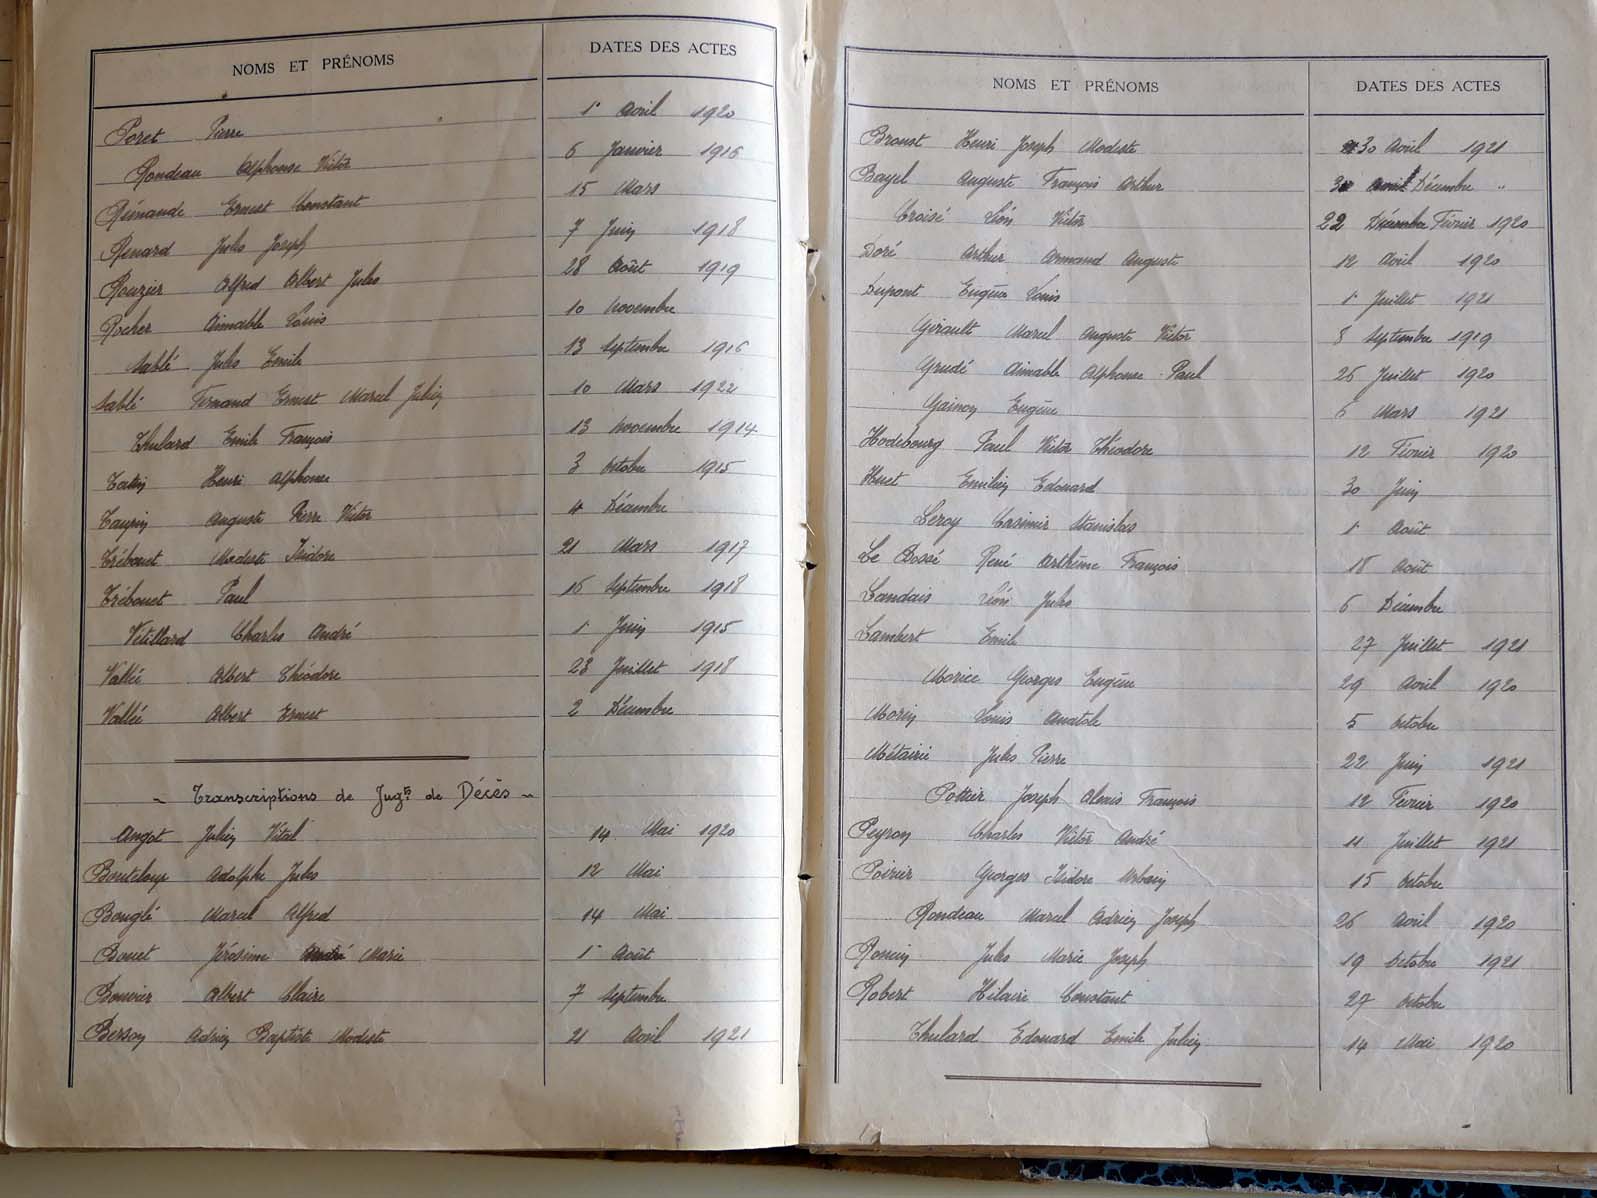 NOMS ET PRÉNOMS DATES DES ACTES
Poret Pierre 1er Avril 1920
Rondeau Alphonse Victor 6 Janvier 1916
Rémande Ernest Constant 15 Mars
Renard Jules Joseph 7 Juin 1918
Rouzier Alfred Albert Jules 28 Août 1919
Rocher Aimable Louis 10 Novembre
Sablé Jules Emile 13 Septembre 1916
Sablé Fernand Ernest Marcel Julien 10 Mars 1922
Thulard Emile François 13 Novembre 1914
Henri Alphonse 3 Octobre 1915
Taupin Auguste Pierre Victor 4 Décembre
Trébouet Modeste Isidore 21 Mars 1917
Trébouet Paul 16 Septembre 1918
Vétillard Charles André 1 Juin 1915
Vallée Albert Théodore 23 Juillet 1918
Vallée Albert Ernest 2 Décembre
~ Transcriptions de Jugts de Décès ~
Angot Julien Vital 14 Mai 1920
Bouteloup Adolphe Jules 12 Mai
Bouglé Marcel Alfred 14 Mai
Bouet Jérôsime André Marie 1er Août
Bouvier Albert Claire 7 Septembre
Berson Adrien Baptiste Modeste 21 Avril 1921
NOMS ET PRÉNOMS DATES DES ACTES
Broust Henri Joseph Modeste 30 Avril 1921
Bayel Auguste François Arthur 30 Avril Décembre "
Croisé Léon Victor 22 Décembre Février 1920
Doré Arthur Armand Auguste 12 Avril 1920
Dupont Eugène Louis 1er Juillet 1921
Girault Marcel Auguste Victor 8 Septembre 1919
Grudé Aimable Alphonse Paul 26 Juillet 1920
Eugène 6 Mars 1921
Hodebourg Paul Victor Théodore 12 Février 1920
Huet Emilien Edouard 30 Juin
Leroy Casimir Stanislas 1 Août
Le Bossé René Arthème François 18 Août
Landais Léon Jules 6 Décembre
Lambert Emile 27 Juillet 1921
Morice Georges Eugène 29 Avril 1920
Morin Louis Anatole 5 Octobre
Métairie Jules Pierre 22 Juin 1921
Pottier Joseph Alexis François 12 Février 1920
Peyron Charles Victor André 11 Juillet 1921
Poirier Georges Isidore Urbain 15 Octobre
Rondeau Marcel Adrien Joseph 26 Avril 1920
Jules Marie Joseph 19 Octobre 1921
Robert Hilaire Constant 27 Octobre
Thulard Edouard Emile Julien 14 Mai 1920